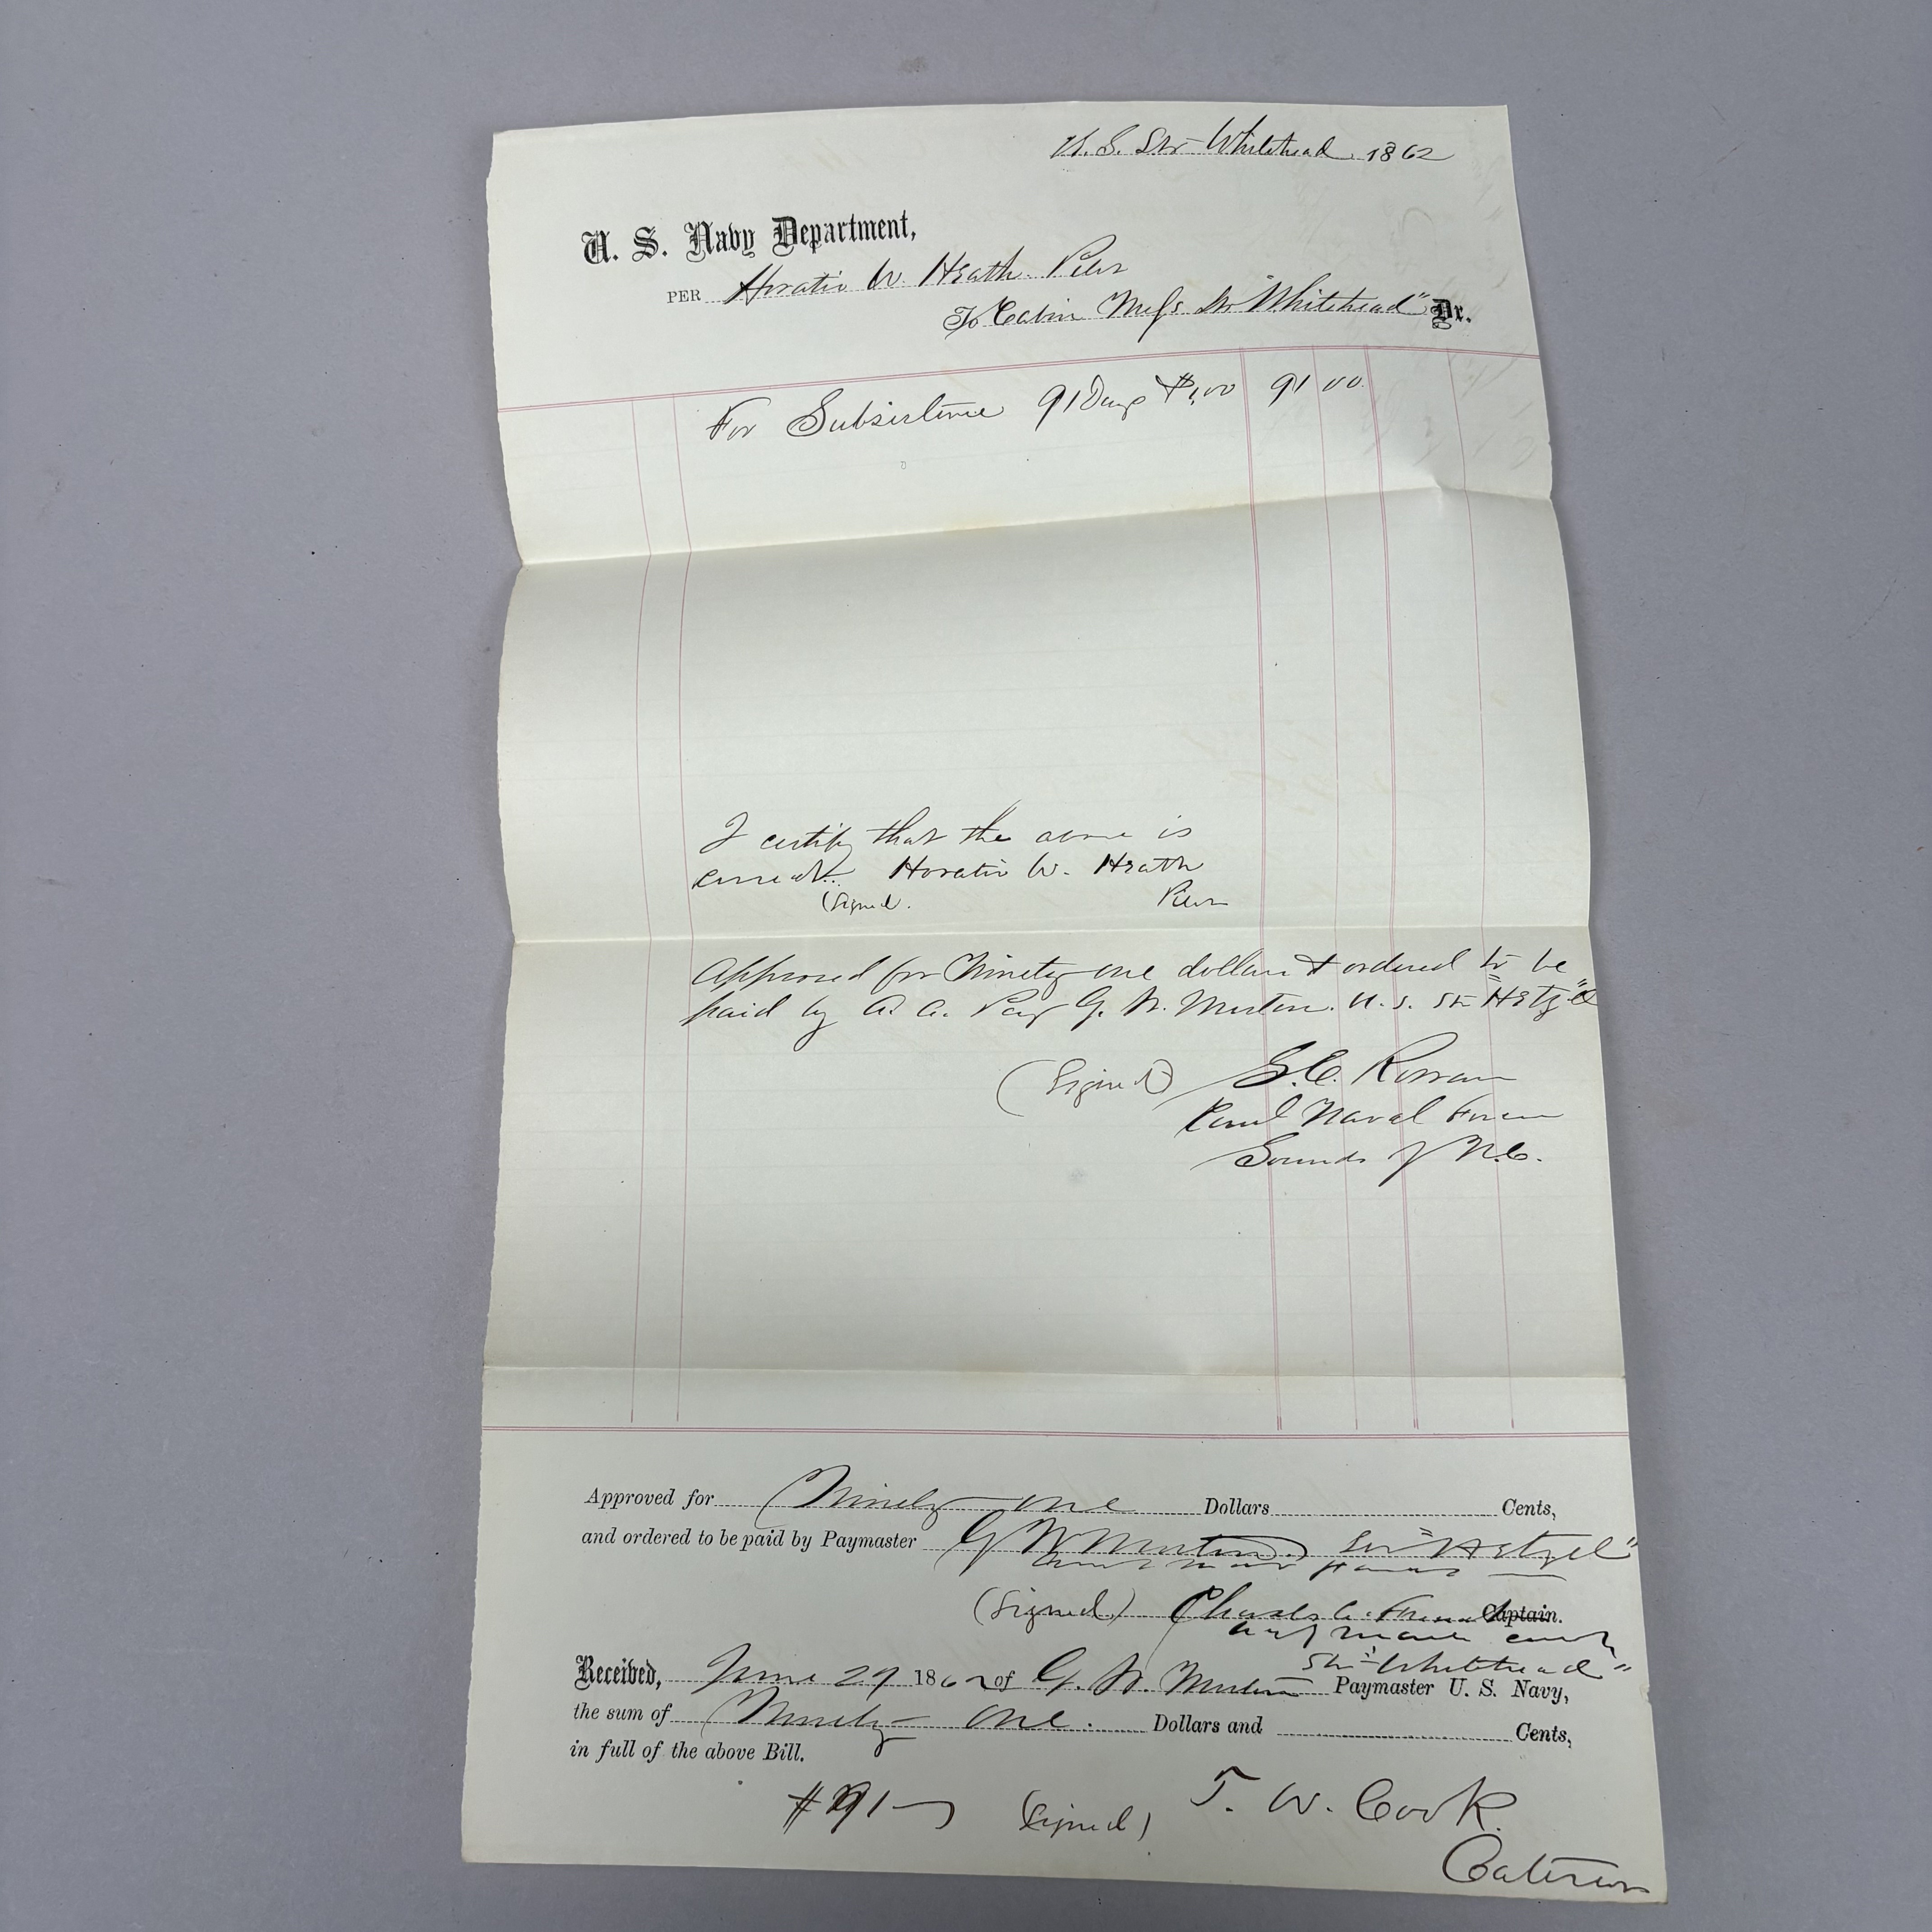 U. S. Str Whitehead 1862
U. S. Navy Department,
PER Horatio W. Heath Pilot
To Cabin Mess Str "Whitehead" Dr.
For Subsistence 91 Days $1,00 91 00
I certify that the above is
correct. Horatio W. Heath
(Signed. Pilot
Approved for Ninety one dollars & ordered to be
paid by A. A. Pay G. W. Morton. U. S. Str "Hetzel"
(Signed) S. C. Rowan
Comd Naval Forces
Sounds of N.C.
Approved for Ninety one Dollars Cents,
and ordered to be paid by Paymaster G W Morton Str "Hetzel"
(Signed) Charles A. French Captain.
Act Master Comdg
Str "Whitehead"
Received, June 29 1862 of G. W. Morton Paymaster U. S. Navy,
the sum of Ninety one Dollars and Cents,
in full of the above Bill.
$91 (Signed) T. W. Cook
Caterer